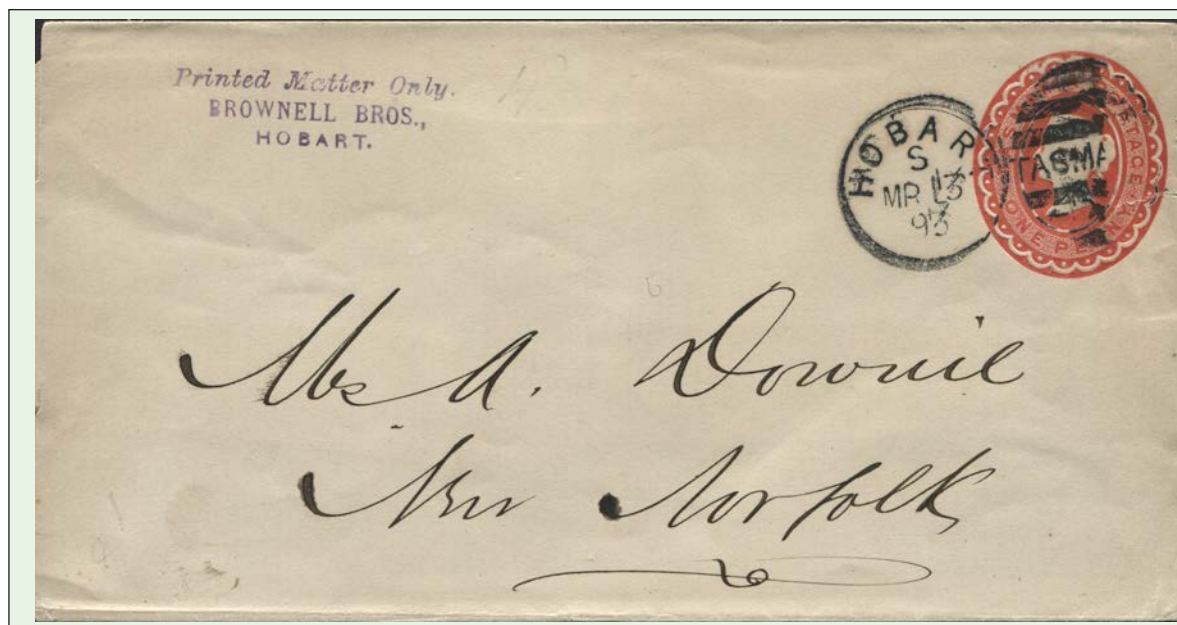 Printed Matter Only.
BROWNELL BROS.,
HOBART.
HOBAR
S
MR
93
TASMA
ONE PENNY
Mrs A. Downie
New Norfolk